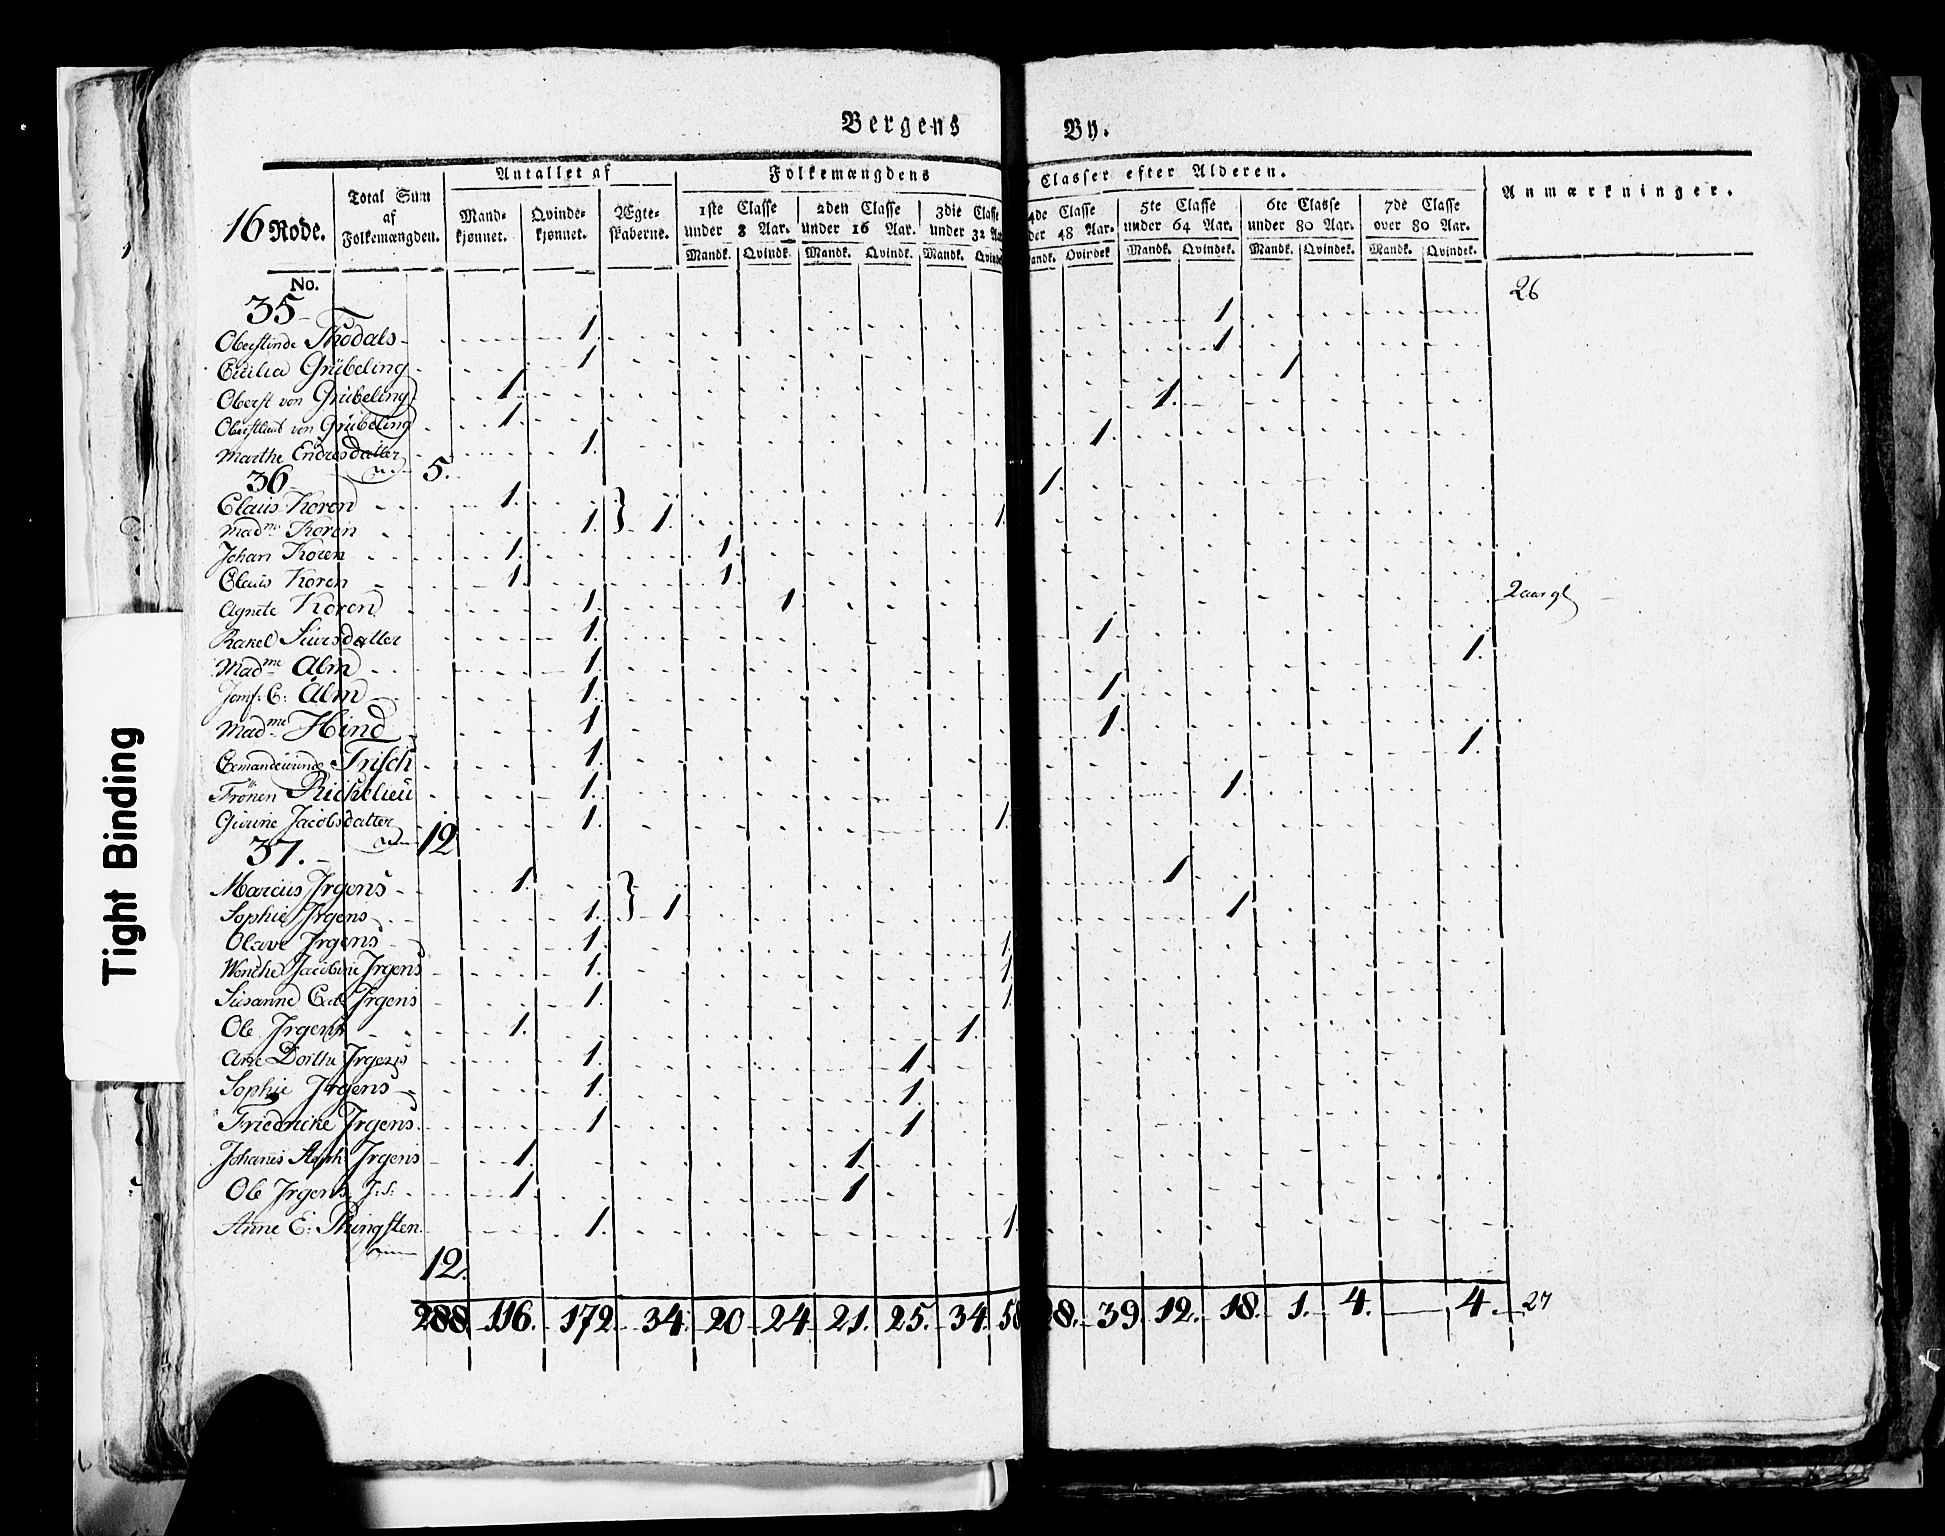 Bergens By.
16 Rode. Total Sum af Folkemængden. Antallet af Folkemængdens Classer efter Alderen. Anmærkninger.
Mandkjønnet. Qvindekjønnet. Ægteskaberne. 1ste Classe under 8 Aar. 2den Classe under 16 Aar. 3die Classe under 32 Aar 4de Classe der 48 Aar. 5te Classe under 64 Aar. 6te Classe under 80 Aar. 7de Classe over 80 Aar.
Mandk. Qvindk. Mandk. Qvindk. Mandk. Qvindek Mandk. Qvindek Mandk. Qvindek. Mandk. Qvindek. Mandk. Qvindek.
No.
35 26
Oberstinde Thodals 1. 1.
Cecilia Grübeling 1. 1.
Oberst von Grübeling 1. 1.
Oberstlieut von Grübeling 1. 1.
Marthe Endresdatter 1. 1.
5.
36
Claus Koren 1. 1.
Madme Koren 1. } 1. 1.
Johan Koren 1. 1.
Claus Koren 1. 1.
Agnete Koren 1. 1. 2 aar gl
Rakel Siursdatter 1. 1.
Madme Alm 1. 1.
Jomf: C: Alm 1. 1.
Madme Hind 1. 1.
Frisch 1. 1.
Frönen Richelieu 1. 1.
Giurine Jacobsdatter 1. 1.
12
37.
Marcus Irgens 1. 1.
Sophie Irgens 1. } 1. 1.
Olave Irgens 1. 1.
Wenche Jacobine Irgens 1. 1.
Susanne Irgens 1. 1.
Ole Irgens 1. 1.
Ane Dorthe Irgens 1. 1.
Sophie Irgens 1. 1.
Friedricke Irgens. 1. 1.
Johanes Irgens 1. 1.
Ole Irgens, J:S: 1. 1.
Anne E: Thingsten. 1. 1.
12.
288. 116. 172. 34. 20 24 21. 25. 34. 58 28. 39. 12. 18. 1. 4. — 4. 27
Tight Binding